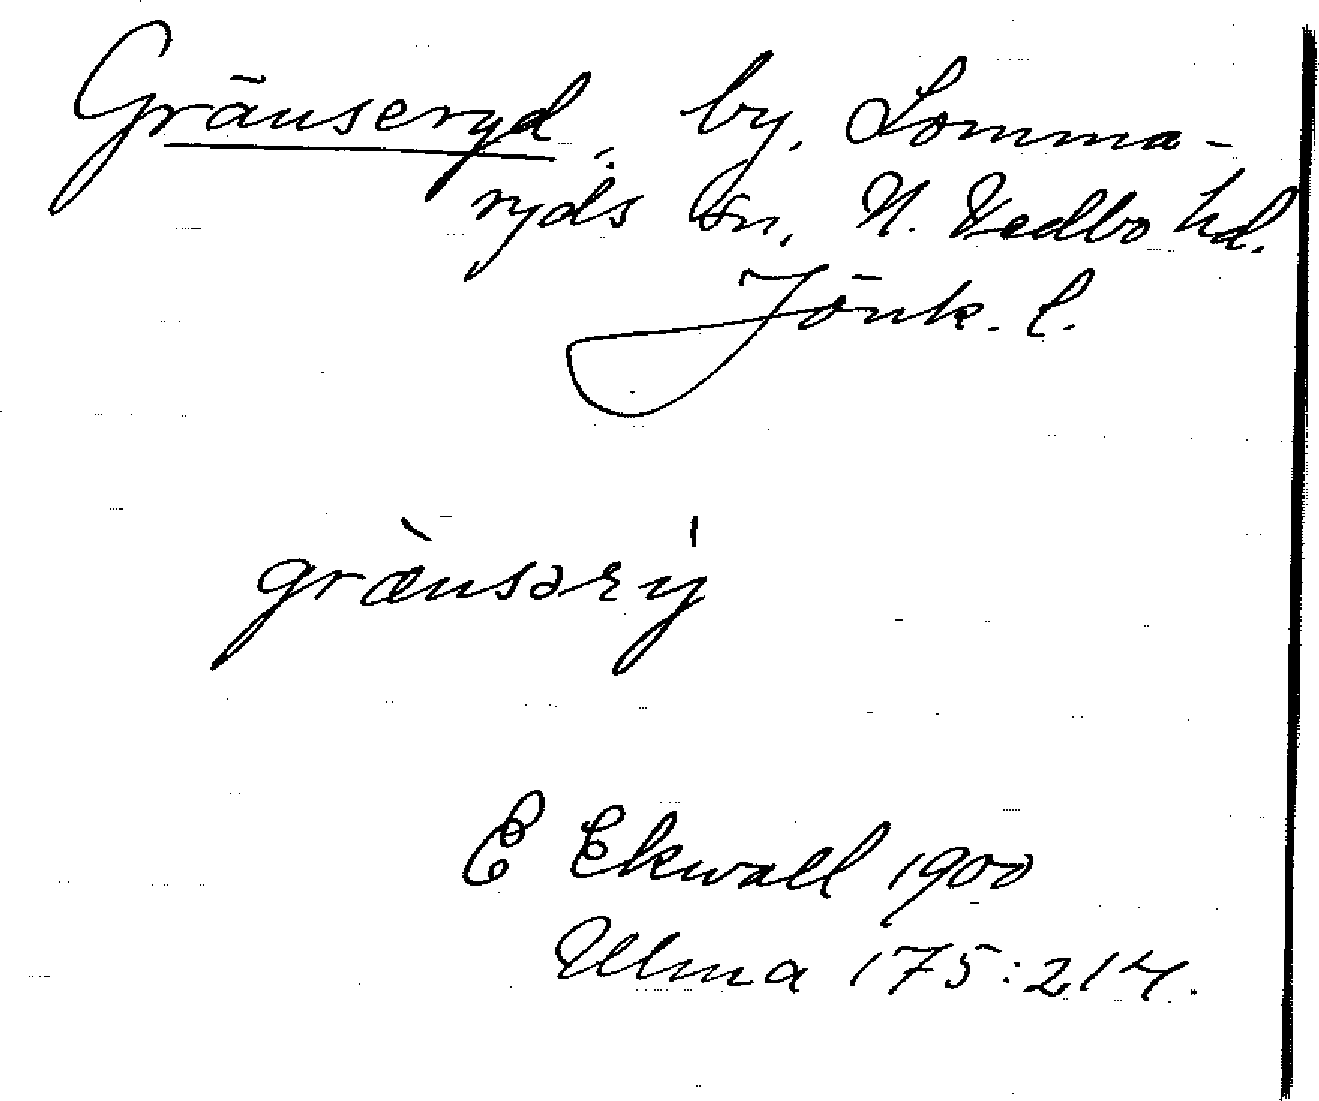 Gränseryd, by, Lomma-
ryds sn, N. Vedbo hd.
Jönk. l.
grænsəry
E Ekwall 1900
Ulma 175:214.